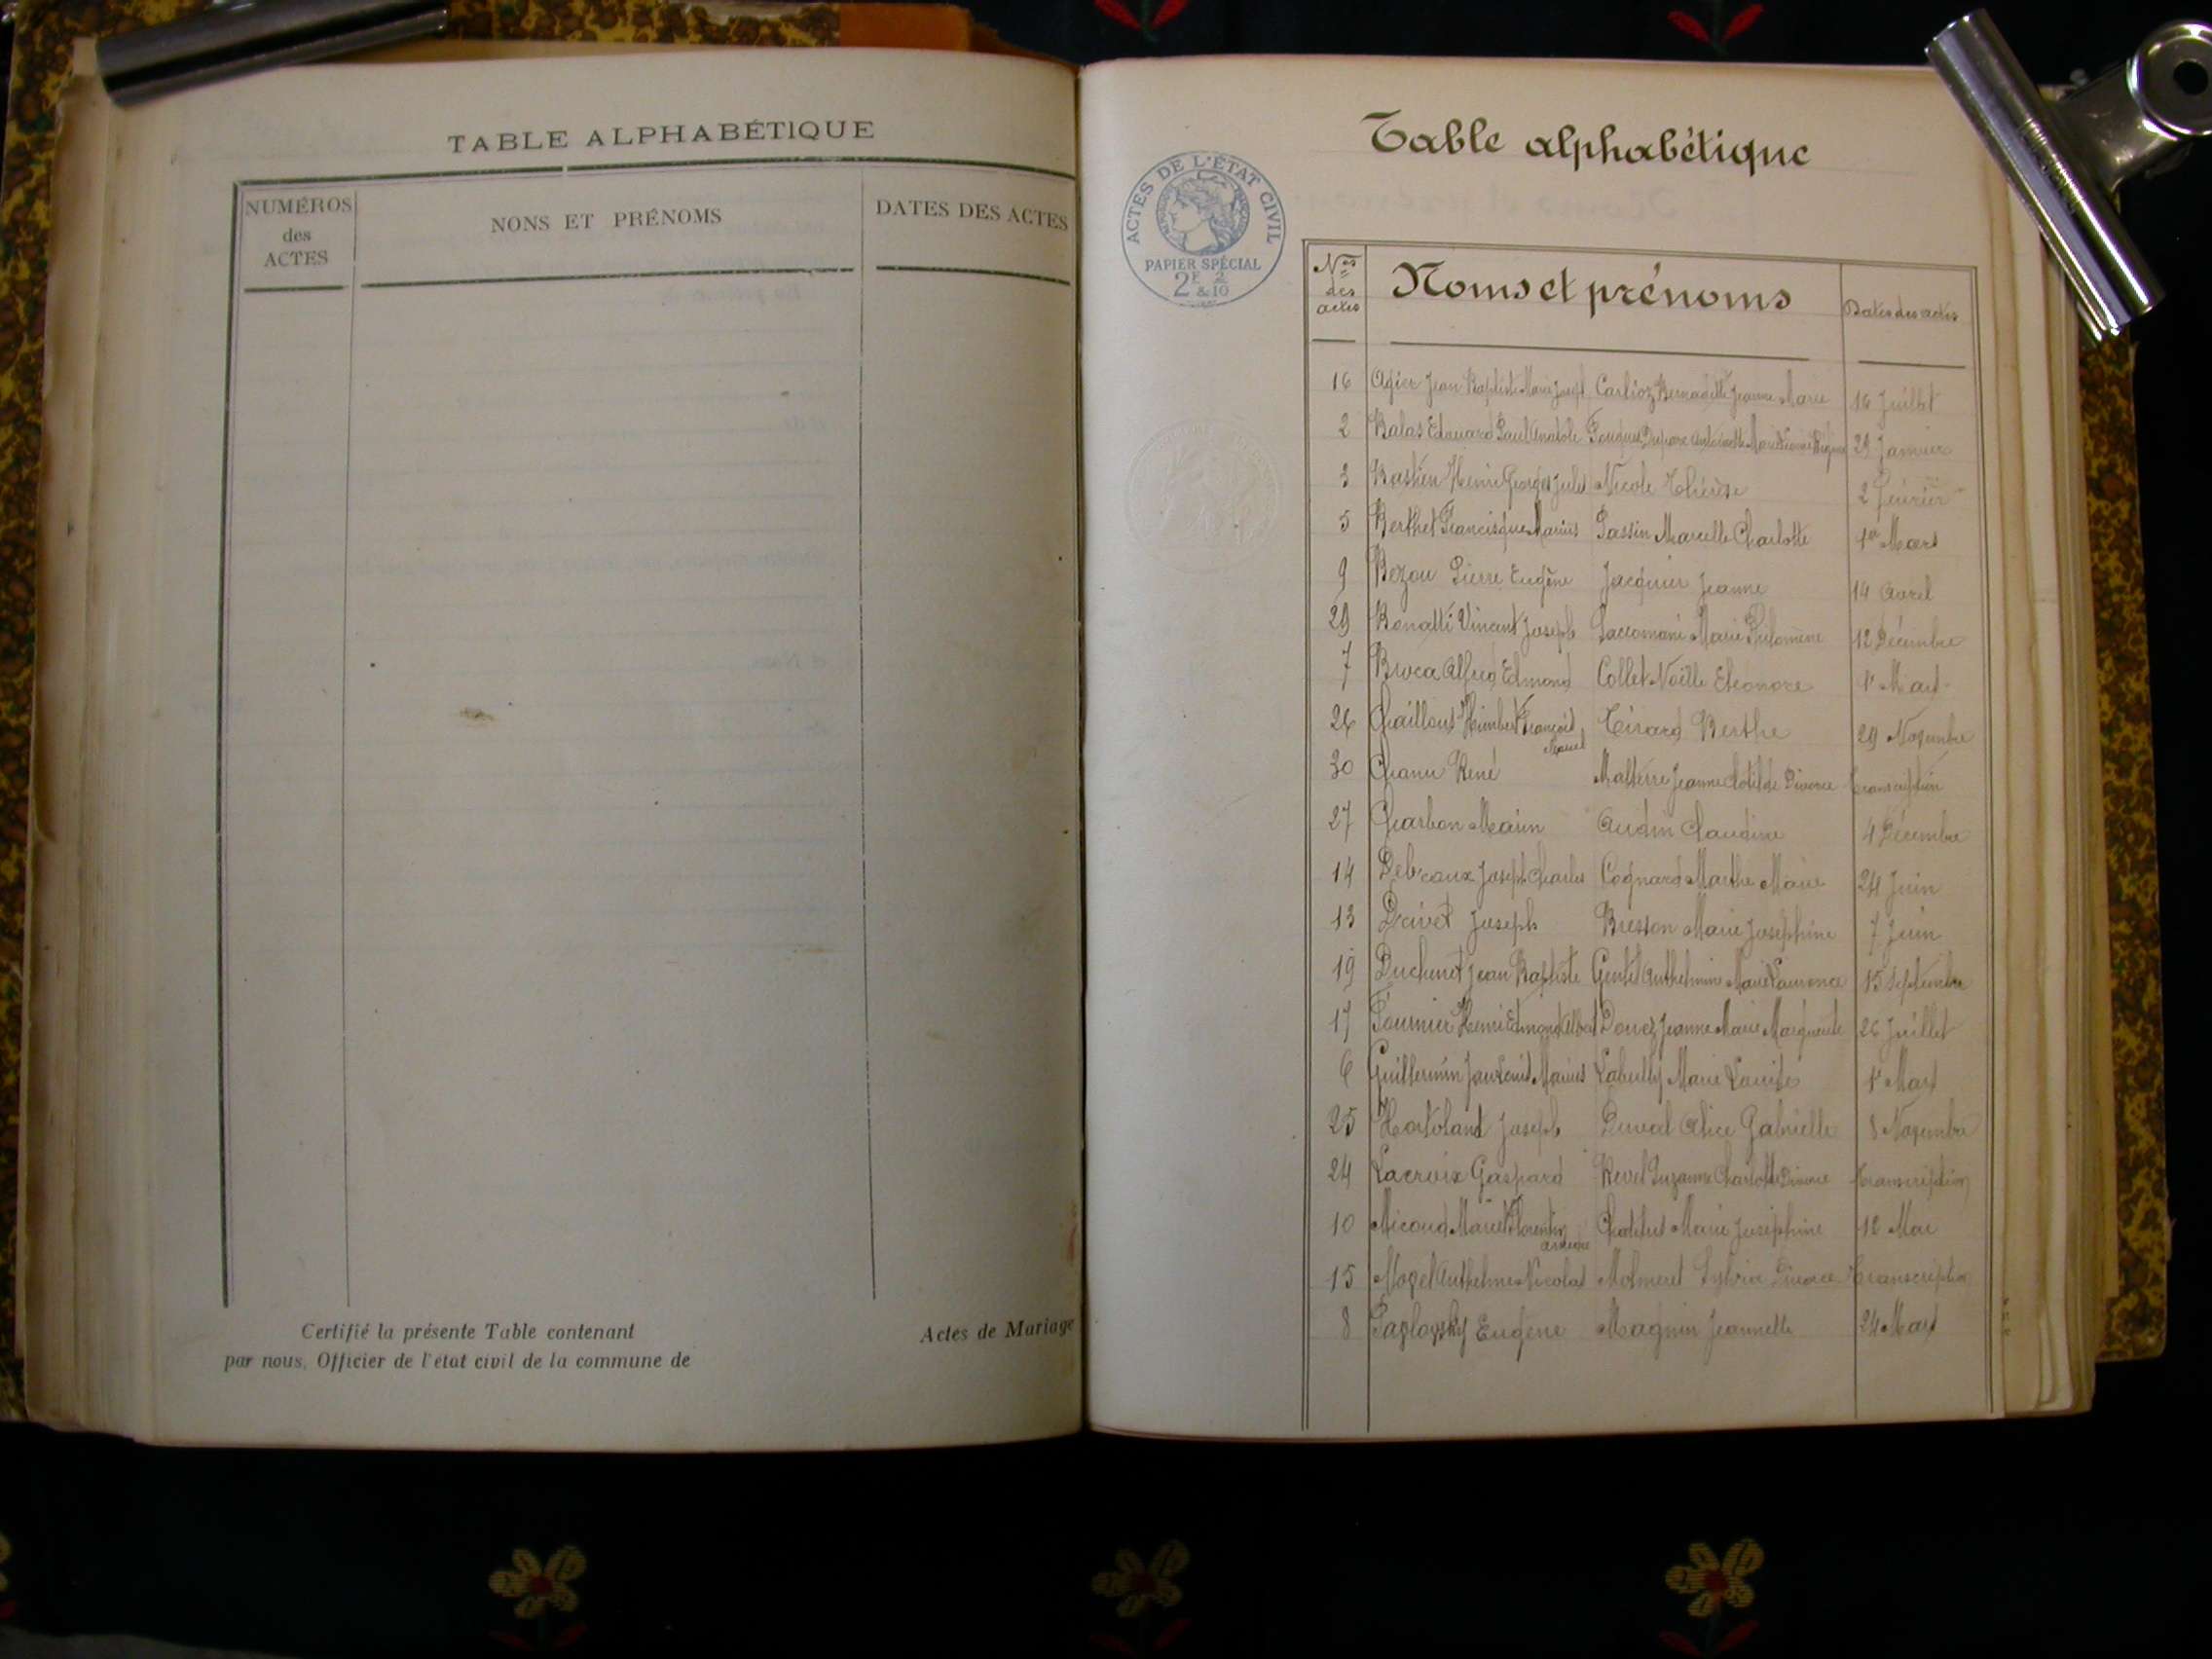 TABLE ALPHABÉTIQUE
NUMÉROS
des
ACTES
NONS ET PRÉNOMS
DATES DES ACTES
Certifié la présente Table contenant
Actes de Mariage
par nous, Officier de l'état civil de la commune de
Table alphabétique
ACTES DE L'ÉTAT CIVIL
PAPIER SPÉCIAL
2F & 2/10
Nos
des
actes
Noms et prénoms
Dates des actes
16 Agier Jean Baptiste Marie Joseph Carlioz Bernadette Jeanne Marie 16 Juillet
2 Balas Edouard Paul Anatole Antoinette Marie 29 Janvier
3 Bastien Henri Georges Jules Nicole Thérèse 2 Février
5 Berthet Francisque Marius Passin Marcelle Charlotte 1er Mars
9 Bozon Pierre Eugène Jacquier Jeanne 14 Avril
29 Bonatti Vincent Joseph Saccomani Marie Philomène 12 Décembre
7 Broca Alfred Edmond Collet Noëlle Eléonore 1r Mars
26 Chaillout Humbert François Tirard Berthe 29 Novembre
Marcel
30 Chanu René Malterre Jeanne Clotilde Divorce Transcription
27 Charbon Marin Audin Claudine 4 Décembre
14 Debeaux Joseph Charles Cognard Marthe Marie 24 Juin
13 Drivet Joseph Bresson Marie Joséphine 7 Juin
19 Duchenet Jean Baptiste Gentil Anthelmine Marie Laurence 15 Septembre
17 Fournier Henri Edmond Albert Donez Jeanne Marie Marguerite 26 Juillet
6 Guillermin Jean Louis Marius Labully Marie Louise 1r Mars
25 Hortoland Joseph Duval Alice Gabrielle 8 Novembre
24 Lacroix Gaspard Revel Suzanne Charlotte Divorce Transcription
10 Micoud Marie Florentin Marie Joséphine 12 Mai
15 Anthelme Nicolas Molmeret Sylvia Divorce Transcription
8 Pavlovsky Eugène Magnin Jeannette 24 Mars